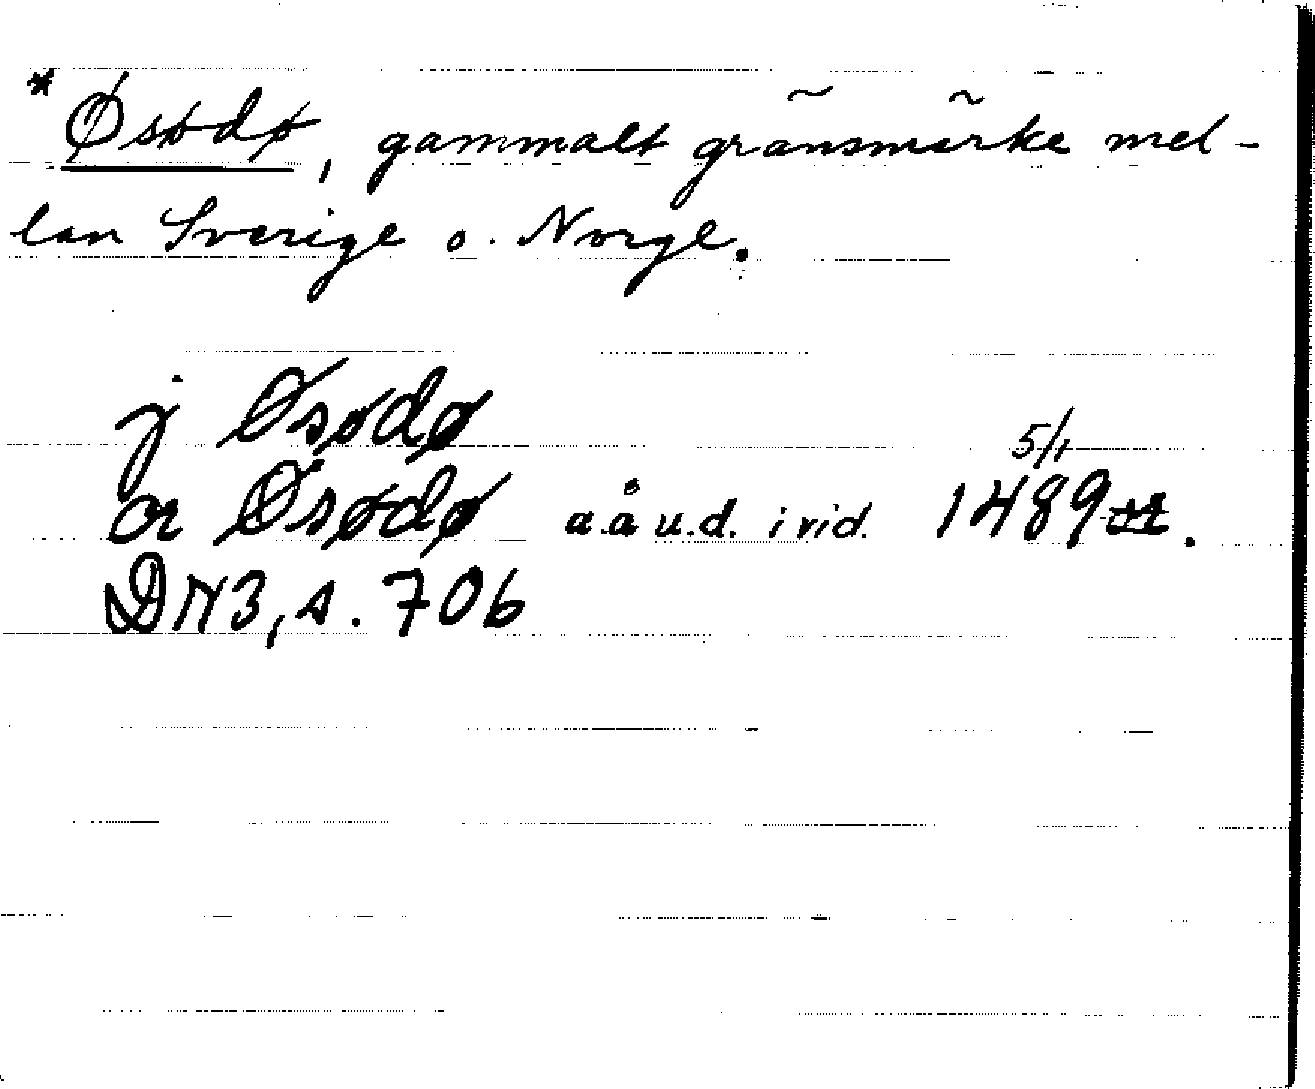 * Øsødø, gammalt gränsmärke mel-
lan Sverige o. Norge.
j Øsødø
or Øsødø a.å u.d. i vid. 5/1 1489.
DN3, s. 706